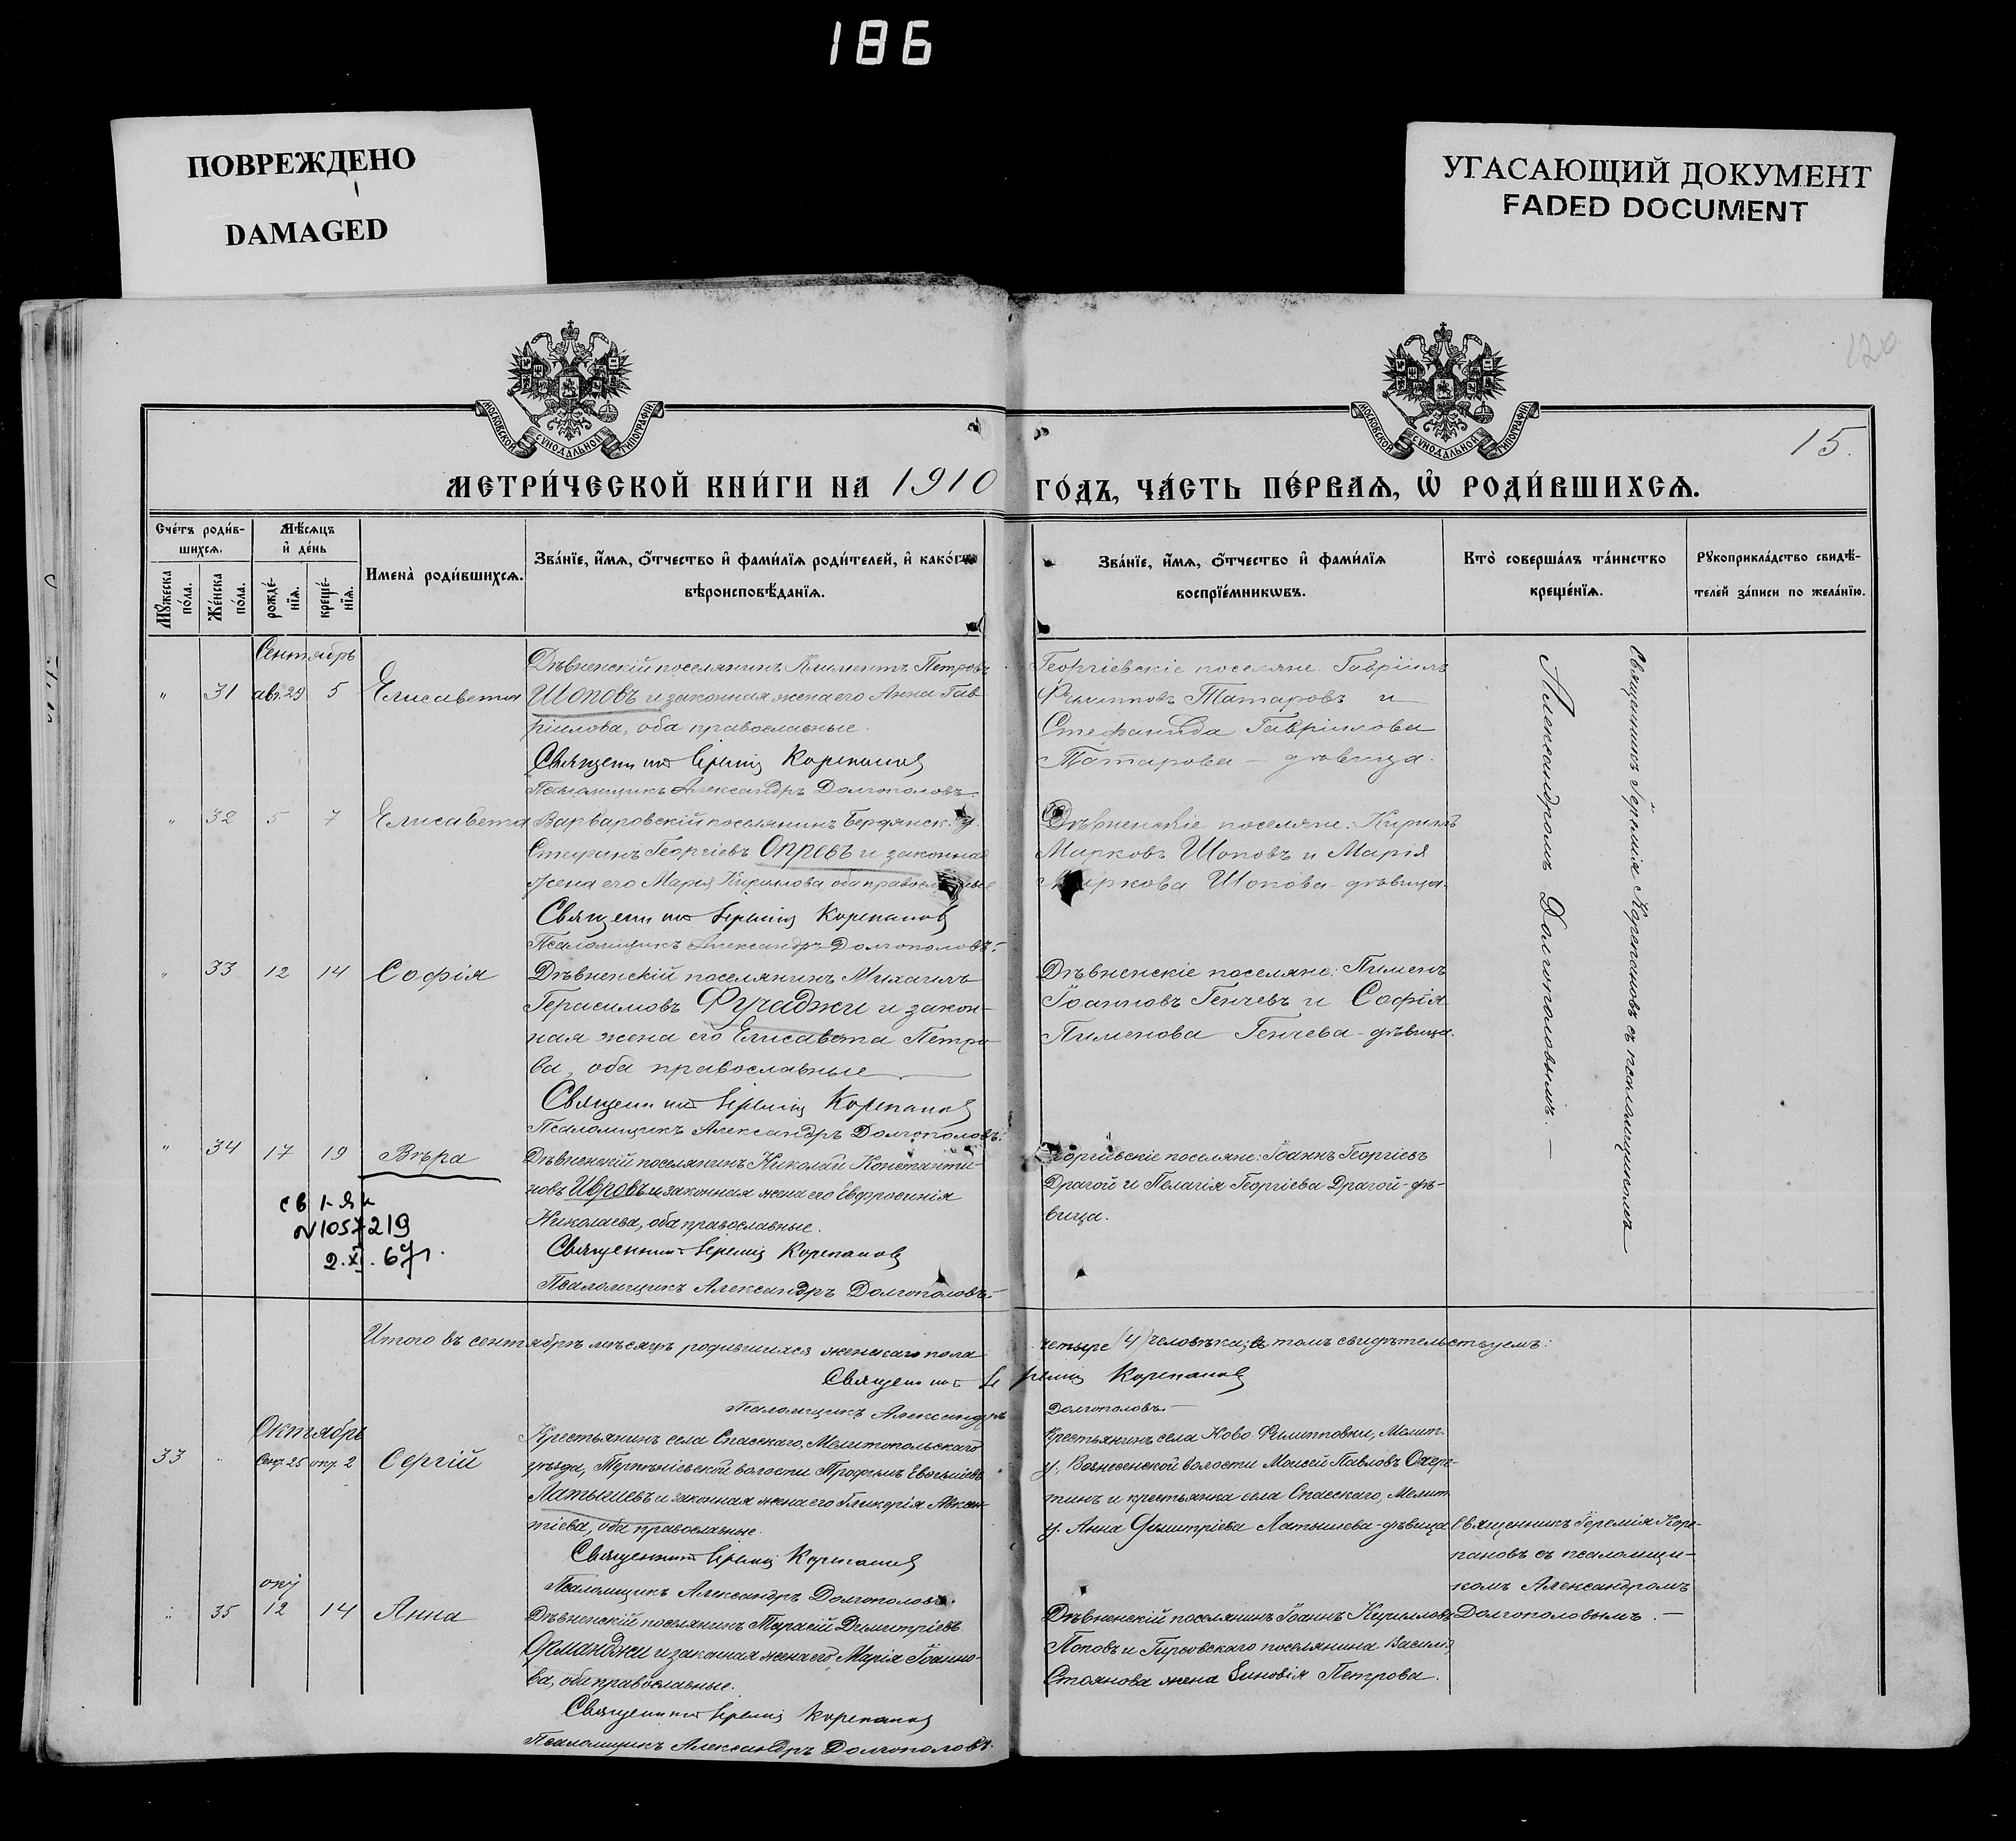 186
ПОВРЕЖДЕНО
DAMAGED
УГАСАЮЩИЙ ДОКУМЕНТ
FADED DOCUMENT
120
МОСКОВСКОЙ СѴНОДАЛЬНОЙ ТИПОГРАФІИ
МОСКОВСКОЙ СѴНОДАЛЬНОЙ ТИПОГРАФІИ
15.
МЕТРИ́ЧЕСКОЙ КНИ́ГИ НА 1910 ГО́ДЪ, ЧА́СТЬ ПЕ́РВАѦ, Ѡ҆ РОДИ́ВШИХСѦ.
Сче́тъ роди́вшихсѧ.
Мꙋ́жеска по́ла.
Же́нска по́ла.
Мѣ́сѧцъ и҆ де́нь
рожде́нїѧ.
креще́нїѧ.
Имена̀ роди́вшихсѧ.
Зва́нїе, и҆́мѧ, ѻ҆́тчество и҆ фами́лїѧ роди́телей, и҆ како́гѡ
вѣроисповѣ́данїѧ.
Зва́нїе, и҆́мѧ, ѻ҆́тчество и҆ фами́лїѧ
воспрїе́мникѡвъ.
Кто̀ соверша́лъ та́инство
креще́нїѧ.
Рꙋкоприкла́дство свидѣ́-
телей за́писи по жела́нїю.
Сентябрь
" 31 авг. 29 5 Елисавета
Дѣвненскій поселянинъ Климентъ Петровъ
Шоповъ и законная жена его Анна Гав
ріилова, оба православные.
Священникъ Іеремія Корепановъ
Псаломщикъ Александръ Долгополовъ.
Георгіевскіе поселяне Гавріилъ
Филипповъ Татаровъ и
Стефанида Гавріилова
Татарова – дѣвица.
" 32 5 7 Елисавета
Варваровскій поселянинъ Бердянск. у.
Стефанъ Георгіевъ Опревъ и законная
жена его Марія Кириллова оба православные
Священникъ Іеремія Корепановъ
Псаломщикъ Александръ Долгополовъ.
Дѣвненскіе поселяне: Кириллъ
Марковъ Шоповъ и Марія
Маркова Шопова – дѣвица.
" 33 12 14 Софія
Дѣвненскій поселянинъ Михаилъ
Герасимовъ Фучаджи и закон-
ная жена его Елисавета Петро-
ва, оба православные
Священникъ Іеремія Корепановъ
Псаломщикъ Александръ Долгополовъ.
Дѣвненскіе поселяне: Пименъ
Іоанновъ Генчевъ и Софія
Пименова Генчева – дѣвица.
" 34 17 19 Вѣра
Дѣвненскій поселянинъ Николай Константи-
новъ Ивковъ и законная жена его Евфросинія
Николаева, оба православные.
Священникъ Іеремія Корепановъ
Псаломщикъ Александръ Долгополовъ.
Георгіевскіе поселяне: Іоаннъ Георгіевъ
Драгой и Пелагія Георгіева Драгой – дѣ-
вица.
св. I-ЯИ
N 1057219
2.XI.67г.
Священникъ Іеремія Корепановъ съ псаломщикомъ
Александромъ Долгополовымъ. –
Итого въ сентябрѣ мѣсяцѣ родившихся женскаго пола четыре (4) человѣка; въ томъ свидѣтельствуемъ:
Священникъ Іеремія Корепановъ
Псаломщикъ Александръ Долгополовъ. –
Октябрь
33 " Сен. 25 окт. 2 Сергій
Крестьянинъ села Спасскаго, Мелитопольскаго
уѣзда, Терпѣніевской волости Трофимъ Евсевіевъ
Латышевъ и законная жена его Гликерія Авксен-
тіева, оба православные.
Священникъ Іеремія Корепановъ
Псаломщикъ Александръ Долгополовъ.
Крестьянинъ села Ново Филипповки, Мелит.
у., Вознесенской волости Моисей Павловъ
и крестьянка села Спасскаго, Мелит.
у. Анна Димитріева Латышева – дѣвица
Священникъ Іеремія Коре-
пановъ съ псаломщи-
комъ Александромъ
Долгополовымъ. –
окт.
" 35 12 14 Анна
Дѣвненскій поселянинъ Тарасій Димитріевъ
Арманджи и законная жена его Марія Іоанно-
ва, оба православные.
Священникъ Іеремія Корепановъ
Псаломщикъ Александръ Долгополовъ.
Дѣвненскій поселянинъ Іоаннъ Кирилловъ
Поповъ и Гирсовскаго поселянина Василія
Стоянова жена Зиновія Петрова.